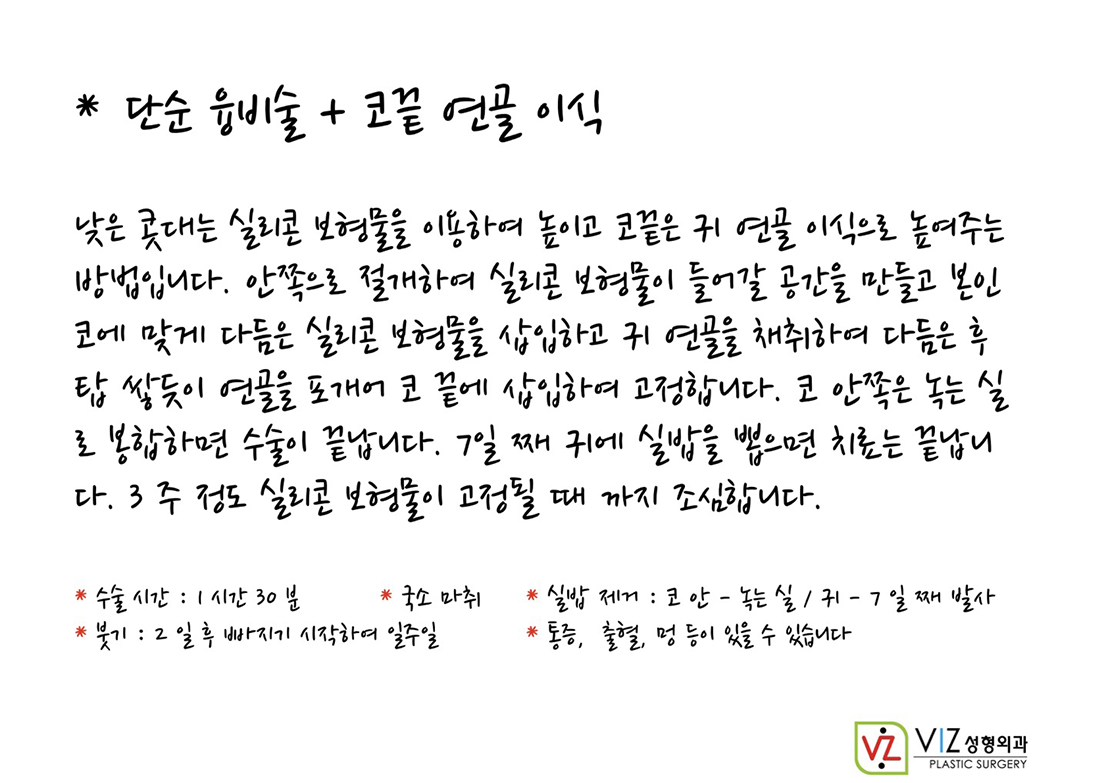 * 단순 융비술 + 코끝 연골 이식
낮은 콧대는 실리콘 보형물을 이용하여 높이고 코끝은 귀 연골 이식으로 높여주는
방법입니다. 안쪽으로 절개하여 실리콘 보형물이 들어갈 공간을 만들고 본인
코에 맞게 다듬은 실리콘 보형물을 삽입하고 귀 연골을 채취하여 다듬은 후
탑 쌓듯이 연골을 포개어 코 끝에 삽입하여 고정합니다. 코 안쪽은 녹는 실
로 봉합하면 수술이 끝납니다. 7일 째 귀에 실밥을 뽑으면 치료는 끝납니
다. 3 주 정도 실리콘 보형물이 고정될 때 까지 조심합니다.
* 수술 시간 : 1 시간 30 분 * 국소 마취 * 실밥 제거 : 코 안 - 녹는 실 / 귀 - 7 일 째 발사
* 붓기 : 2 일 후 빠지기 시작하여 일주일 * 통증, 출혈, 멍 등이 있을 수 있습니다
VZ VIZ성형외과
PLASTIC SURGERY